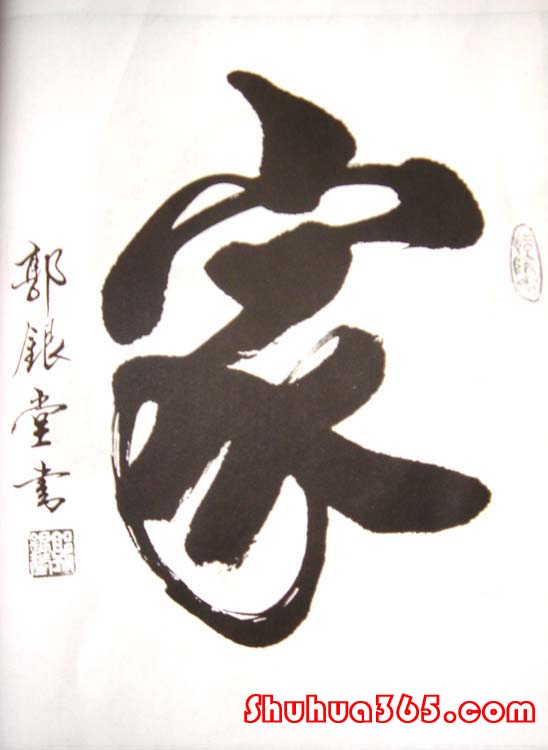 家
郭銀堂书
Shuhua365.com